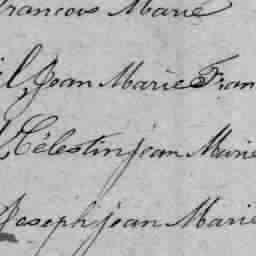 francois Marie
Jean Marie Fran
Célestin jean Marie
Joseph jean Marie